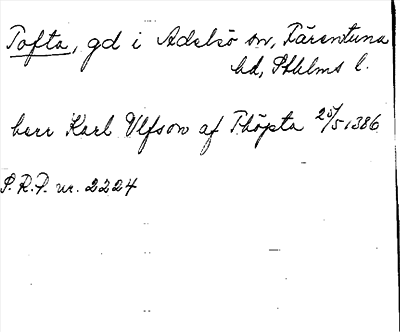 Tofta, gd i Adelsö sn, Färentuna
hd, Sthlms l.
herr Karl Ulfson af Thöpta 25/5 1386
S.R.P. nr. 2224